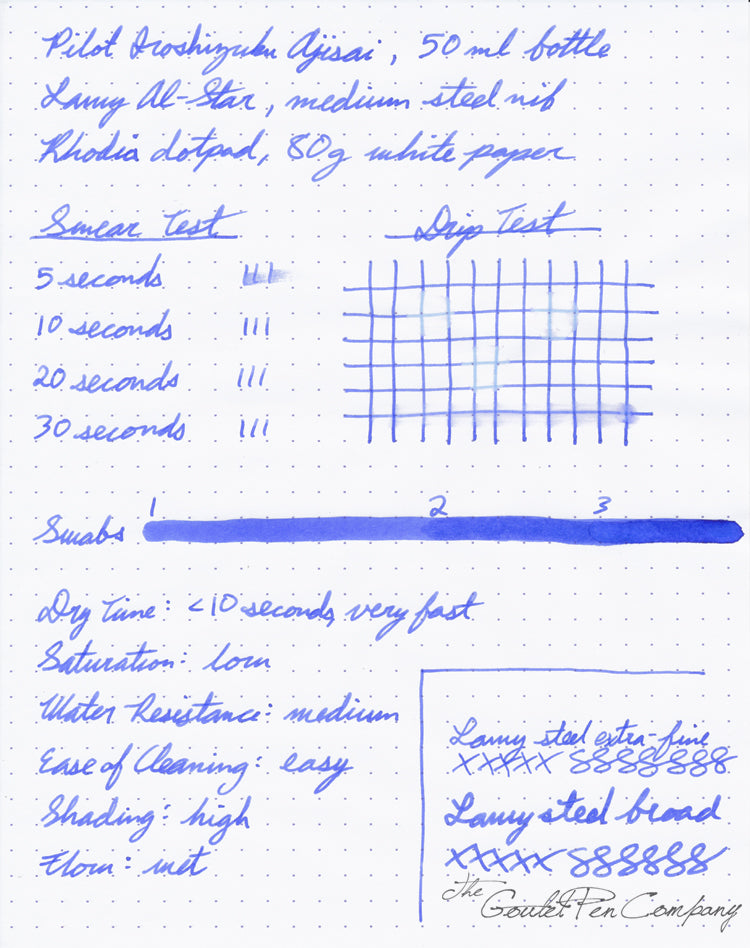 Pilot Iroshizuku Ajisai, 50 ml bottle
Lamy Al-Star, medium steel nib
Rhodia dotpad, 80g white paper
Smear Test
Drip Test
5 seconds III
10 seconds III
20 seconds III
30 seconds III
1 2 3
Swabs
Dry Time: <10 seconds, very fast
Saturation: low
Water Resistance: medium
Ease of Cleaning: easy
Shading: high
Flow: wet
Lamy steel extra-fine
xxxxx 88888888
Lamy steel broad
xxxxx 8888888
The Goulet Pen Company